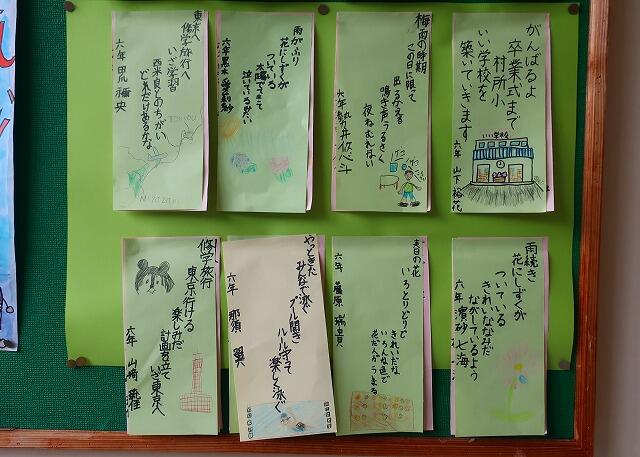 がんばるよ
卒業式まで
村所小
いい学校を
築いていきます
六年 山下 裕花
いい学校
梅雨の時期
この日に限って
出るかえる
鳴き声うるさく
夜ねむれない
六年
雨がふり
花にしずくが
ついている
太陽でてきて
泣いているみたい
六年 黒木
東京へ
修学旅行へ
いざ学習
西米良とのちがい
どれだけあるかな
六年
TOKYOU
MIYAZAKI
雨続き
花にしずくが
ついている
きれいななみだ
ながしているよう
六年 濵砂 七海
春日の花
いろとりどりで
きれいだな
いろんな色で
花だんがうまる
六年
やっときた
みんなで泳ぐ
プール開き
ルール守って
楽しく泳ぐ
六年 那須 翼
修学旅行
東京行ける
楽しみだ
計画を立て
いざ東京へ
六年 山崎